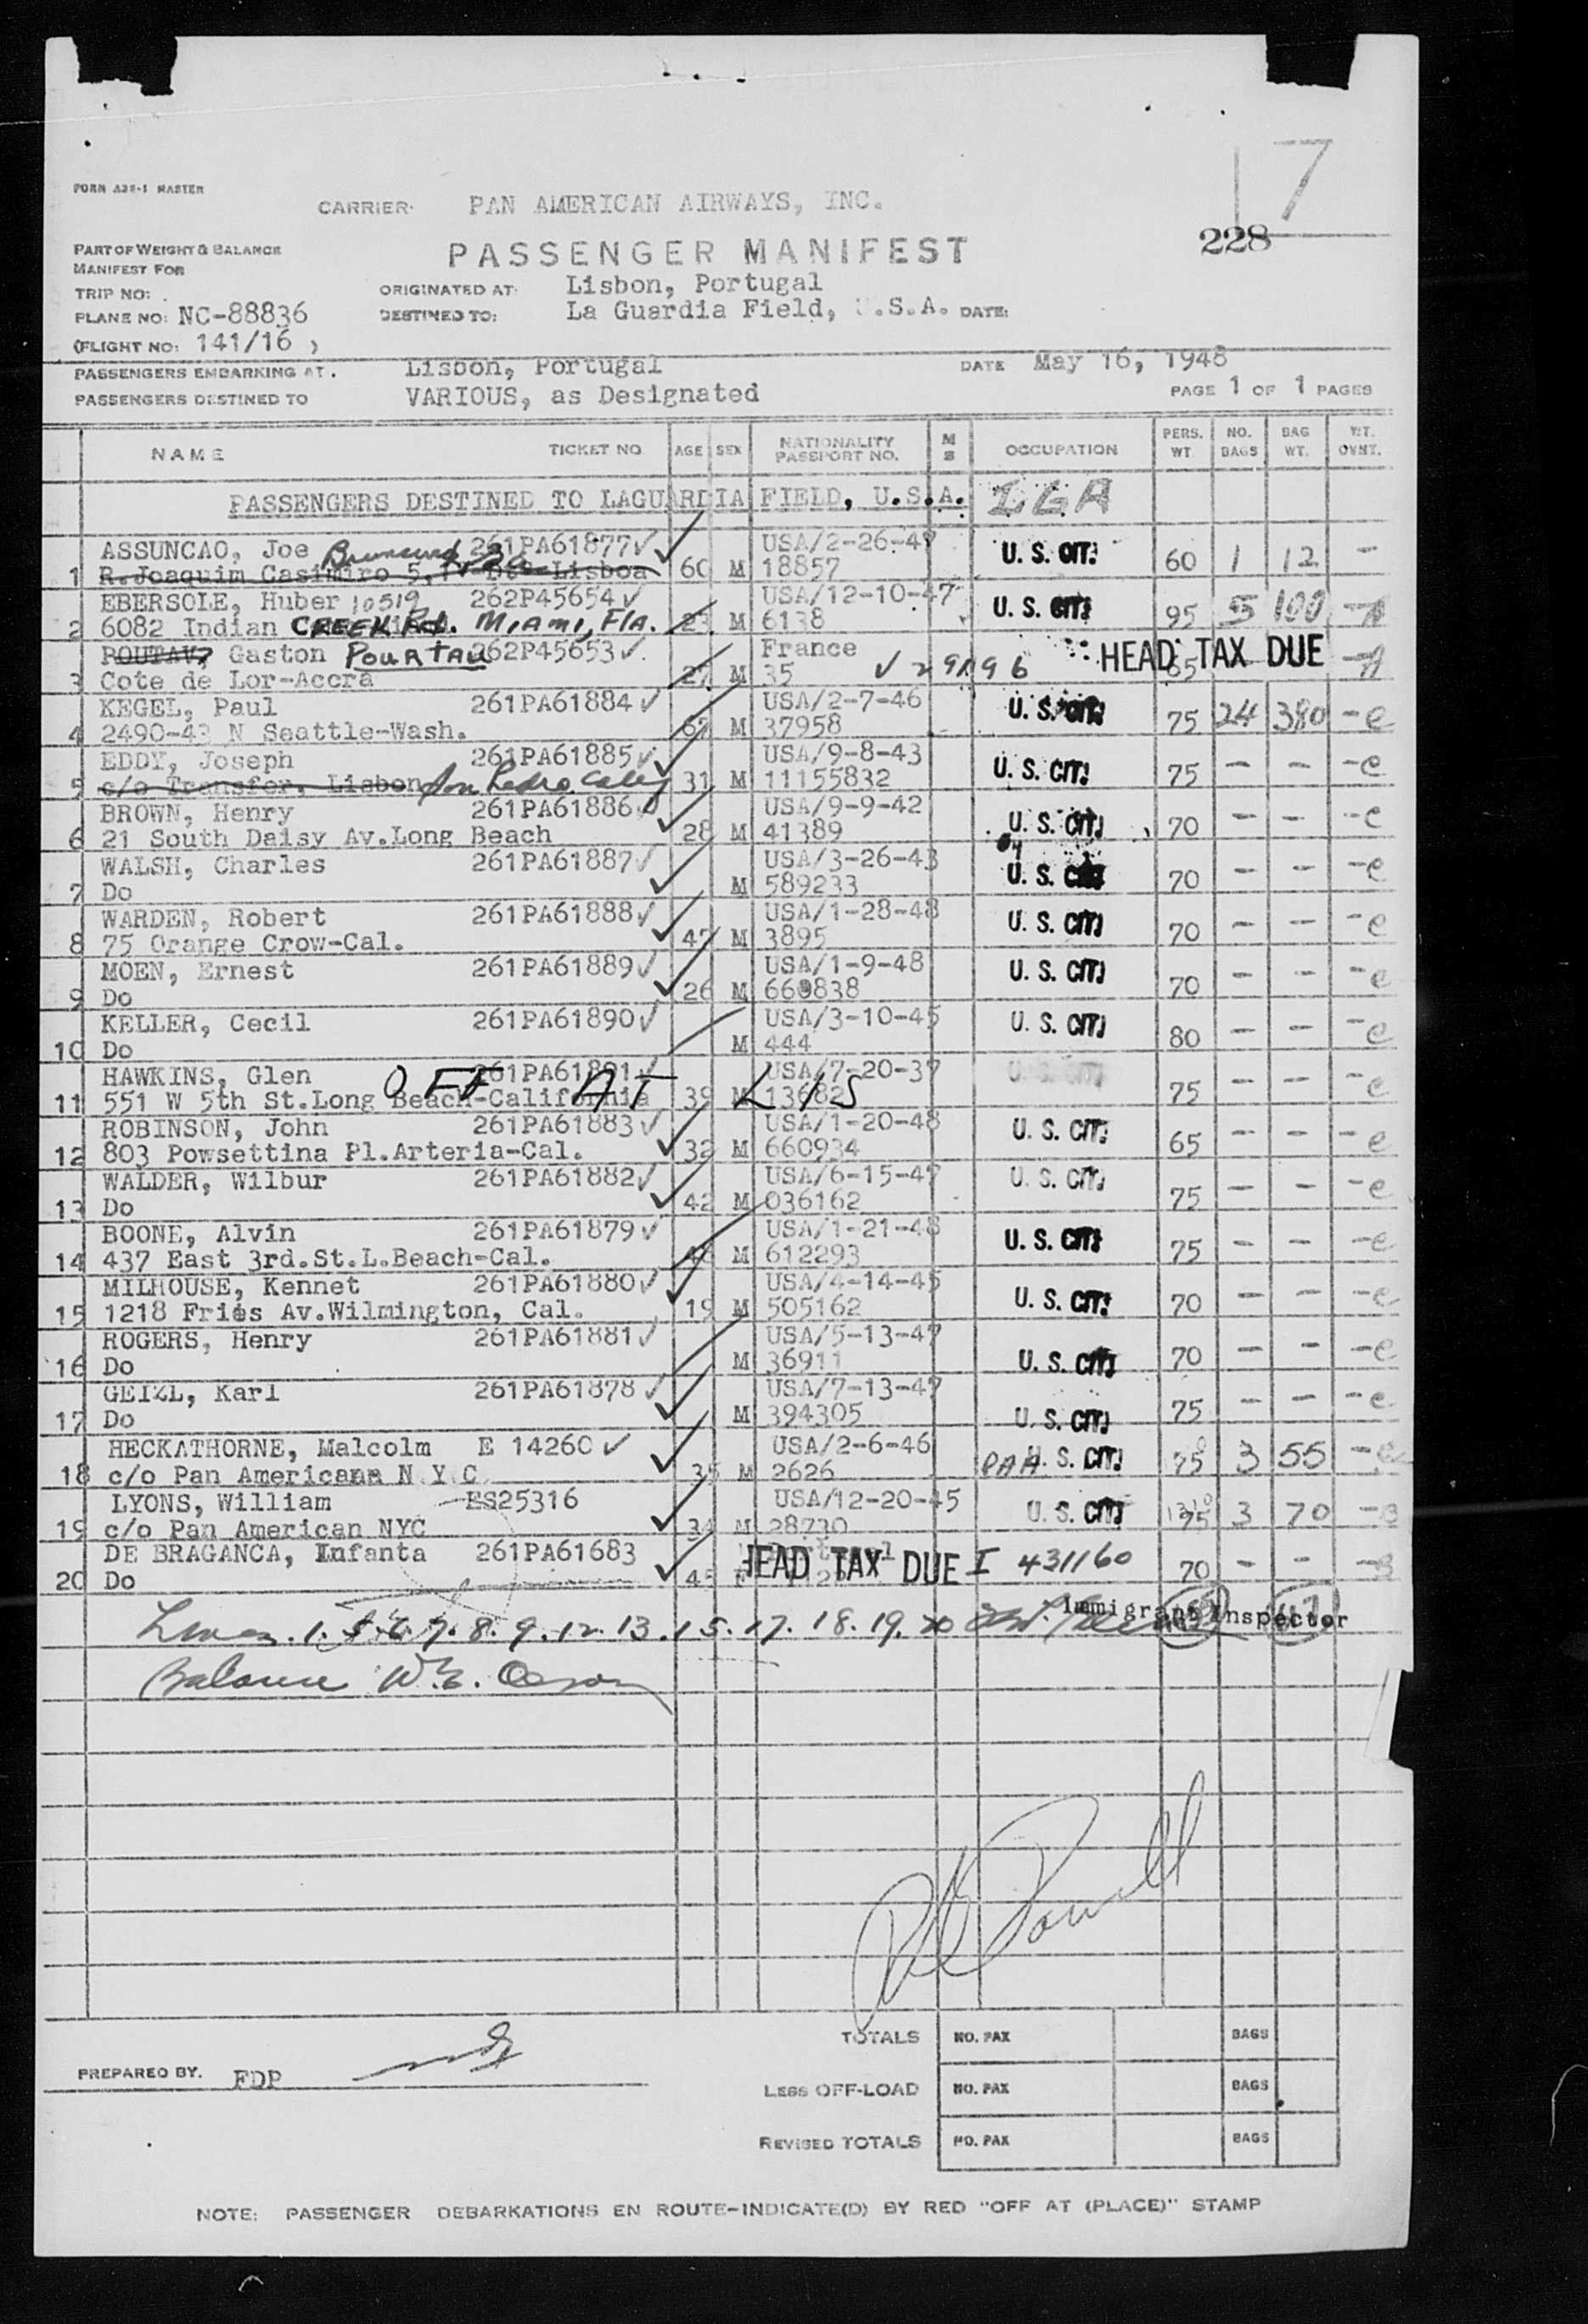 17
FORM A38-1 MASTER
CARRIER: PAN AMERICAN AIRWAYS, INC.
228
PART OF WEIGHT & BALANCE
MANIFEST FOR
PASSENGER MANIFEST
TRIP NO:
ORIGINATED AT: Lisbon, Portugal
PLANE NO: NC-88836
DESTINED TO: La Guardia Field, U.S.A. DATE:
(FLIGHT NO: 141/16 )
PASSENGERS EMBARKING AT. Lisbon, Portugal DATE May 16, 1948
PASSENGERS DESTINED TO VARIOUS, as Designated PAGE 1 OF 1 PAGES
NAME TICKET NO. AGE SEX NATIONALITY PASSPORT NO. M S OCCUPATION PERS. WT. NO. BAGS BAG WT. WT. OVNT.
PASSENGERS DESTINED TO LAGUARDIA FIELD, U.S.A. LGA
ASSUNCAO, Joe 261PA61877✓ USA/2-26-47 U. S. CIT.
1 R.Joaquim Casimiro 5, Lisboa 60 M 18857 60 1 12 -
EBERSOLE, Huber 10519 262P45654✓ USA/12-10-47 U. S. CIT.
2 6082 Indian CREEK Rd. MIAMI, FLA. 23 M 6138 95 5 100 -A
ROUTAV, Gaston POURTAU 262P45653✓ France HEAD TAX DUE
3 Cote de Lor-Accra 27 M 35 65 -A
KEGEL, Paul 261PA61884✓ USA/2-7-46 U. S. CIT.
4 2490-43 N Seattle-Wash. M 37958 75 24 380 -e
EDDY, Joseph 261PA61885✓ USA/9-8-43 U. S. CIT.
5 c/o Transfer, Lisbon San Pedro Calif 31 M 11155832 75 - - -e
BROWN, Henry 261PA61886 USA/9-9-42 U. S. CIT.
6 21 South Daisy Av.Long Beach 28 M 41389 70 - - -e
WALSH, Charles 261PA61887✓ USA/3-26-43 U. S. CIT.
7 Do M 589233 70 - - -e
WARDEN, Robert 261PA61888✓ USA/1-28-48 U. S. CIT.
8 75 Orange Crow-Cal. 47 M 3895 70 - - -e
MOEN, Ernest 261PA61889✓ USA/1-9-48 U. S. CIT.
9 Do 26 M 660838 70 - - -e
KELLER, Cecil 261PA61890✓ USA/3-10-45 U. S. CIT.
10 Do M 444 80 - - -e
HAWKINS, Glen 261PA61891✓ USA/7-20-37 U. S. CIT.
OFF AT LIS
11 551 W 5th St.Long Beach-California 39 M 13682 75 - - -e
ROBINSON, John 261PA61883✓ USA/1-20-48 U. S. CIT.
12 803 Powsettina Pl.Arteria-Cal. 32 M 660934 65 - - -e
WALDER, Wilbur 261PA61882✓ USA/6-15-47 U. S. CIT.
13 Do 42 M 036162 75 - - -e
BOONE, Alvin 261PA61879✓ USA/1-21-48 U. S. CIT.
14 437 East 3rd.St.L.Beach-Cal. M 612293 75 - - -e
MILHOUSE, Kennet 261PA61880✓ USA/4-14-45 U. S. CIT.
15 1218 Fries Av.Wilmington, Cal. 19 M 505162 70 - - -e
ROGERS, Henry 261PA61881✓ USA/5-13-47
16 Do M 36911 U. S. CIT. 70 - - -e
GEIZL, Karl 261PA61878✓ USA/7-13-47
17 Do M 394305 U. S. CIT. 75 - - -e
HECKATHORNE, Malcolm E 14260✓ USA/2-6-46
18 c/o Pan American N Y C 35 M 2626 PAA U. S. CIT. 75 3 55 -e
LYONS, William ES25316 USA/12-20-45
19 c/o Pan American NYC 34 M 28730 U. S. CIT. 75 3 70 -B
DE BRAGANCA, Infanta 261PA61683 HEAD TAX DUE I 431160
20 Do F 70 - - -B
Lines 1. 5. 6. 7. 8. 9. 12. 13. 15. 17. 18. 19. 20 Immigrant Inspector
Balance W. E.
TOTALS NO. PAX BAGS
PREPARED BY. FDP
LESS OFF-LOAD NO. PAX BAGS
REVISED TOTALS NO. PAX BAGS
NOTE: PASSENGER DEBARKATIONS EN ROUTE-INDICATE(D) BY RED "OFF AT (PLACE)" STAMP